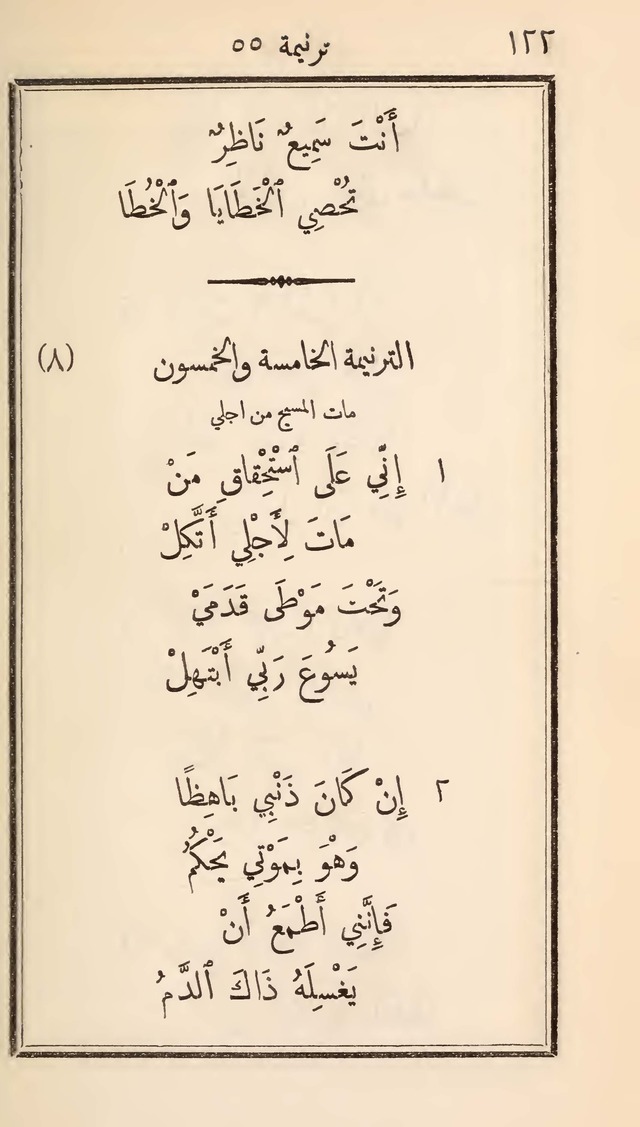 ١٢٢ ترنيمة ٥٥
أَنْتَ سَمِيعٌ نَاظِرٌ
تُحْصِي ٱلْخَطَايَا وَٱلْخُطَا
الترنيمة الخامسة والخمسون (٨)
مات المسيح من اجلي
١ إِنِّي عَلَى ٱسْتِحْقَاقِ مَنْ
مَاتَ لِأَجْلِي أَتَّكِلْ
وَتَحْتَ مَوْطَى قَدَمَيْ
يَسُوعَ رَبِّي أَبْتَهِلْ
٢ إِنْ كَانَ ذَنْبِي بَاهِظًا
وَهْوَ بِمَوْتِي يَحْكُمُ
فَإِنَّنِي أَطْمَعُ أَنْ
يَغْسِلَهُ ذَاكَ ٱلدَّمُ